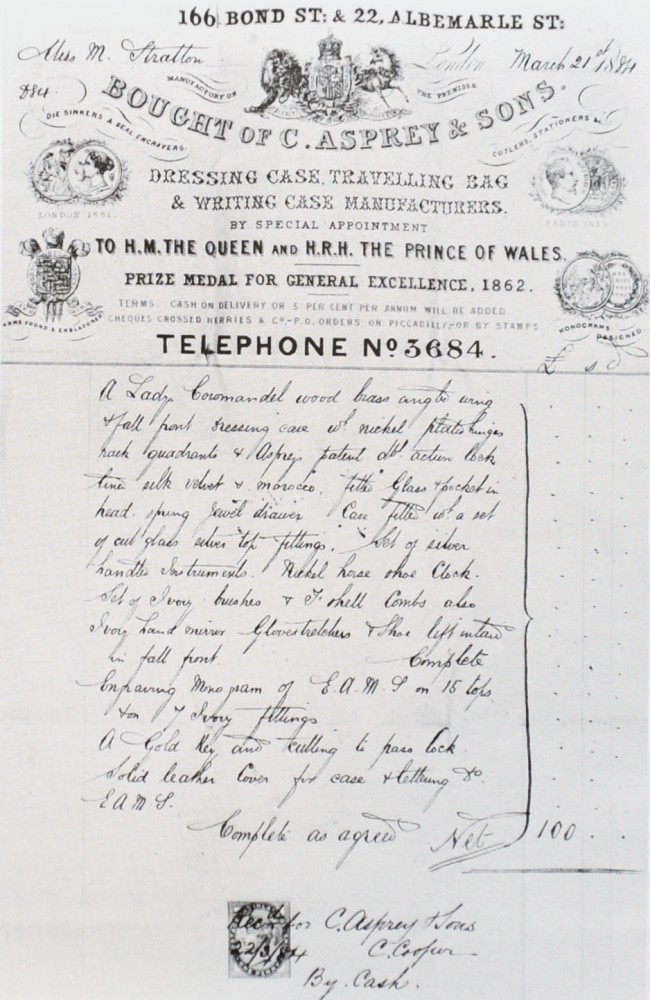 166 BOND ST: & 22, ALBEMARLE ST:
Miss M. Stratton
London March 21st 1884
884.
MANUFACTORY ON THE PREMISES
BOUGHT OF C. ASPREY & SONS.
DIE SINKERS & SEAL ENGRAVERS.
CUTLERS, STATIONERS &c
DRESSING CASE, TRAVELLING BAG
& WRITING CASE MANUFACTURERS.
LONDON 1851.
BY SPECIAL APPOINTMENT
TO H.M. THE QUEEN AND H.R.H. THE PRINCE OF WALES.
PRIZE MEDAL FOR GENERAL EXCELLENCE, 1862.
TERMS: CASH ON DELIVERY, OR 5 PER CENT PER ANNUM WILL BE ADDED
CHEQUES CROSSED HERRIES & Co.-P.O. ORDERS ON PICCADILLY-OR BY STAMPS.
ARMS FOUND & EMBLAZONED
MONOGRAMS DESIGNED
TELEPHONE No 3684.
£ s d
A Lady Coromandel wood brass angle wing
& fall front dressing case wh nickel plated hinges
back quadrants & Aspreys patent dbl action lock
lined silk velvet & morocco. fitted Glass & pocket in
head. spring Jewel drawer Case fitted wh a set
of cut glass silver top fittings. Set of silver
handled Instruments. Nickel horse shoe Clock.
Set of Ivory brushes & T. shell Combs also
Ivory hand mirror Glovestretchers & Shoe lift
in fall front. Complete
Engraving Monogram of E.A.M.S on 15 tops
& on 7 Ivory fittings
A Gold Key and cutting to pass lock.
Solid leather Cover for case & lettering Do.
E A M S.
Complete as agreed Net 100
Recd for C. Asprey & Sons
22/3/84 C. Cooper
By. Cash.